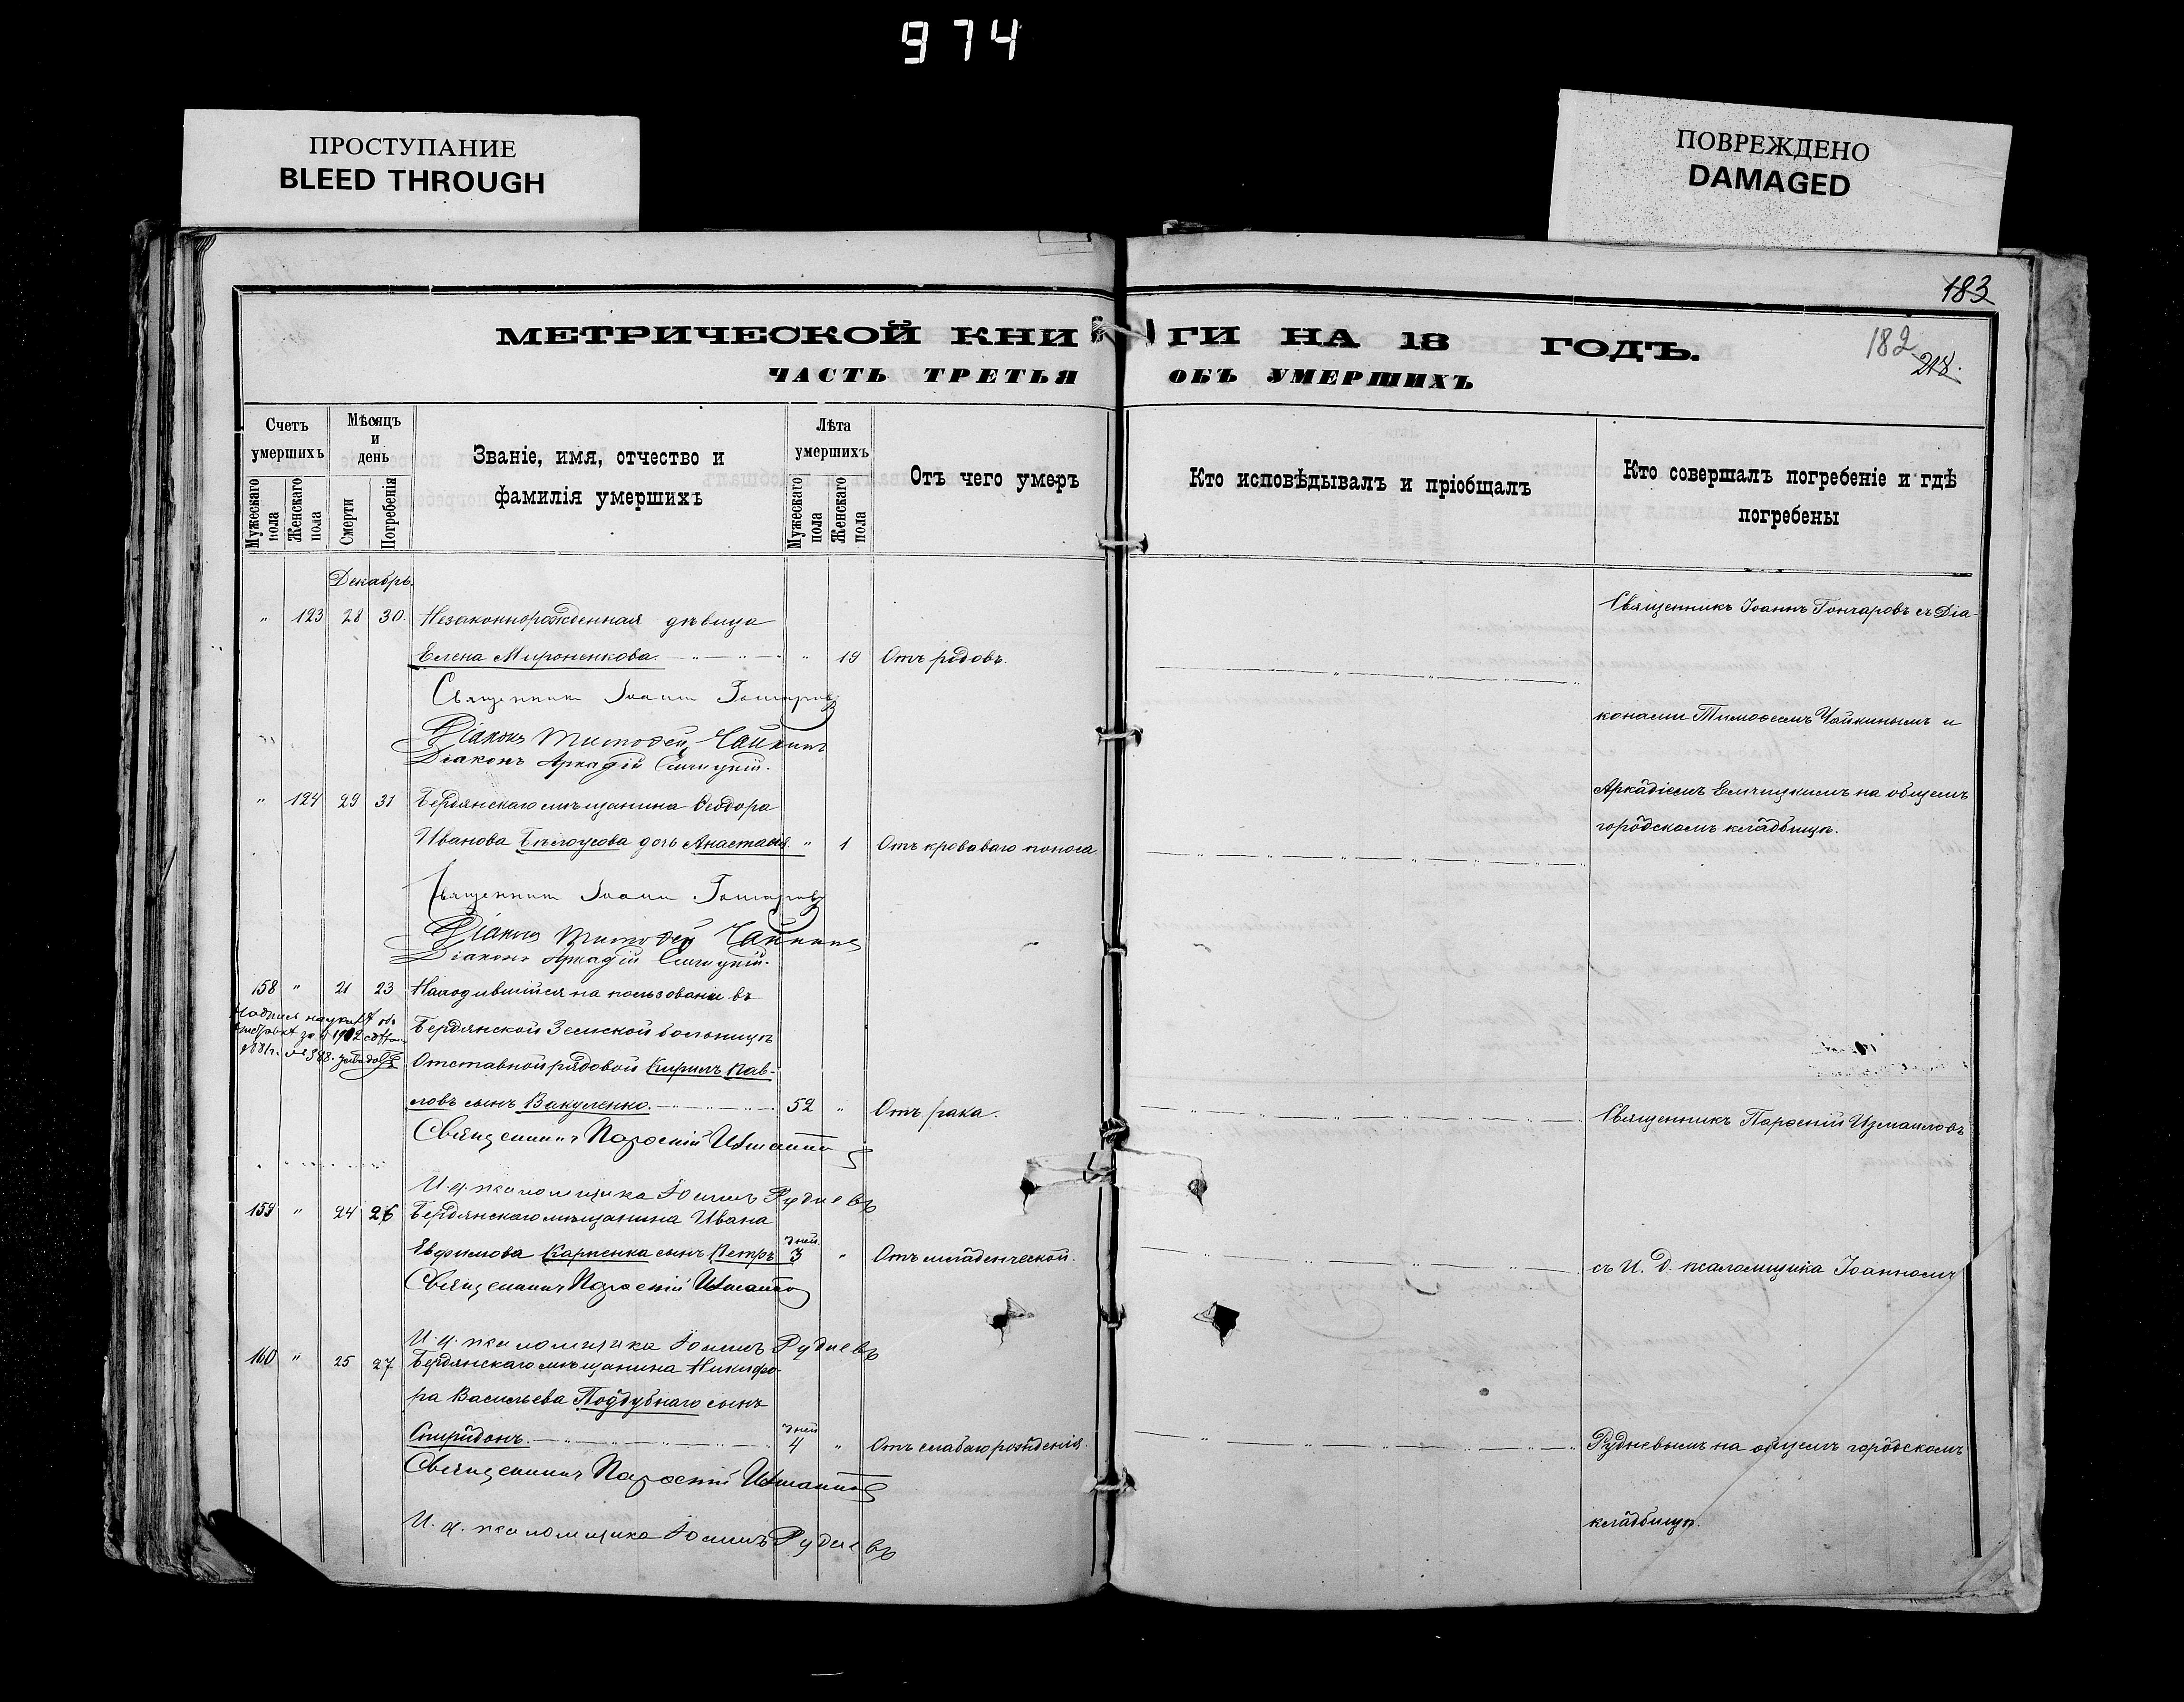 974
ПРОСТУПАНИЕ
BLEED THROUGH
ПОВРЕЖДЕНО
DAMAGED
183
182
218.
МЕТРИЧЕСКОЙ КНИГИ НА 18 ГОДЪ.
ЧАСТЬ ТРЕТЬЯ ОБЪ УМЕРШИХЪ
Счетъ умершихъ
Мужескаго пола
Женскаго пола
Мѣсяцъ и день
Смерти
Погребенія
Званіе, имя, отчество и фамилія умершихъ
Лѣта умершихъ
Мужескаго пола
Женскаго пола
Отъ чего умеръ
Кто исповѣдывалъ и пріобщалъ
Кто совершалъ погребеніе и гдѣ погребены
Декабрь.
" 123 28 30. Незаконнорожденная дѣвица
Елена Мироненкова. " 19 Отъ родовъ.
Священникъ Іоаннъ Гончаровъ
Діаконъ Тимофей Чайкинъ
Діаконъ Аркадій Елчицкій.
Священникъ Іоаннъ Гончаровъ съ Діа-
конами Тимофеемъ Чайкинымъ и
Аркадіемъ Елчицкимъ на общемъ
городскомъ кладбищѣ.
" 124 29 31 Бердянскаго мѣщанина Ѳеодора
Иванова Бѣлоусова дочь Анастасія " 1 Отъ кроваваго поноса.
Священникъ Іоаннъ Гончаровъ
Діаконъ Тимофей Чайкинъ
Діаконъ Аркадій Елчицкій.
158 " 21 23 Находившійся на пользованіи въ
Бердянской Земской больницѣ
Отставной рядовой Кирилъ Пав-
ловъ сынъ Вакуленко. 52 " Отъ рака.
Священникъ Парѳеній Измаиловъ
И. д. псаломщика Іоаннъ Рудневъ
159 " 24 26 Бердянскаго мѣщанина Ивана
Евфимова Карпенка сынъ Петръ дней 3 " Отъ младенческой.
Священникъ Парѳеній Измаиловъ
И. д. псаломщика Іоаннъ Рудневъ
160 " 25 27 Бердянскаго мѣщанина Никифо-
ра Васильева Поддубнаго сынъ
Спиридонъ. дней 4 " Отъ слабаго рожденія.
Священникъ Парѳеній Измаиловъ
И. д. псаломщика Іоаннъ Рудневъ
Священникъ Парѳеній Измаиловъ
съ И. Д. псаломщика Іоанномъ
Рудневымъ на общемъ городскомъ
кладбищѣ.